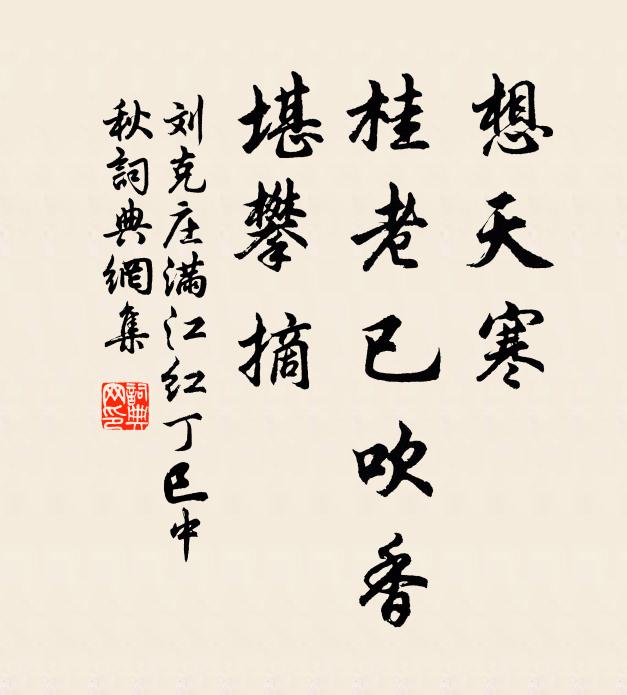 想天寒
桂老已吹香
堪攀摘
刘克庄满江红丁巳中
秋詞典網集
詞典網印